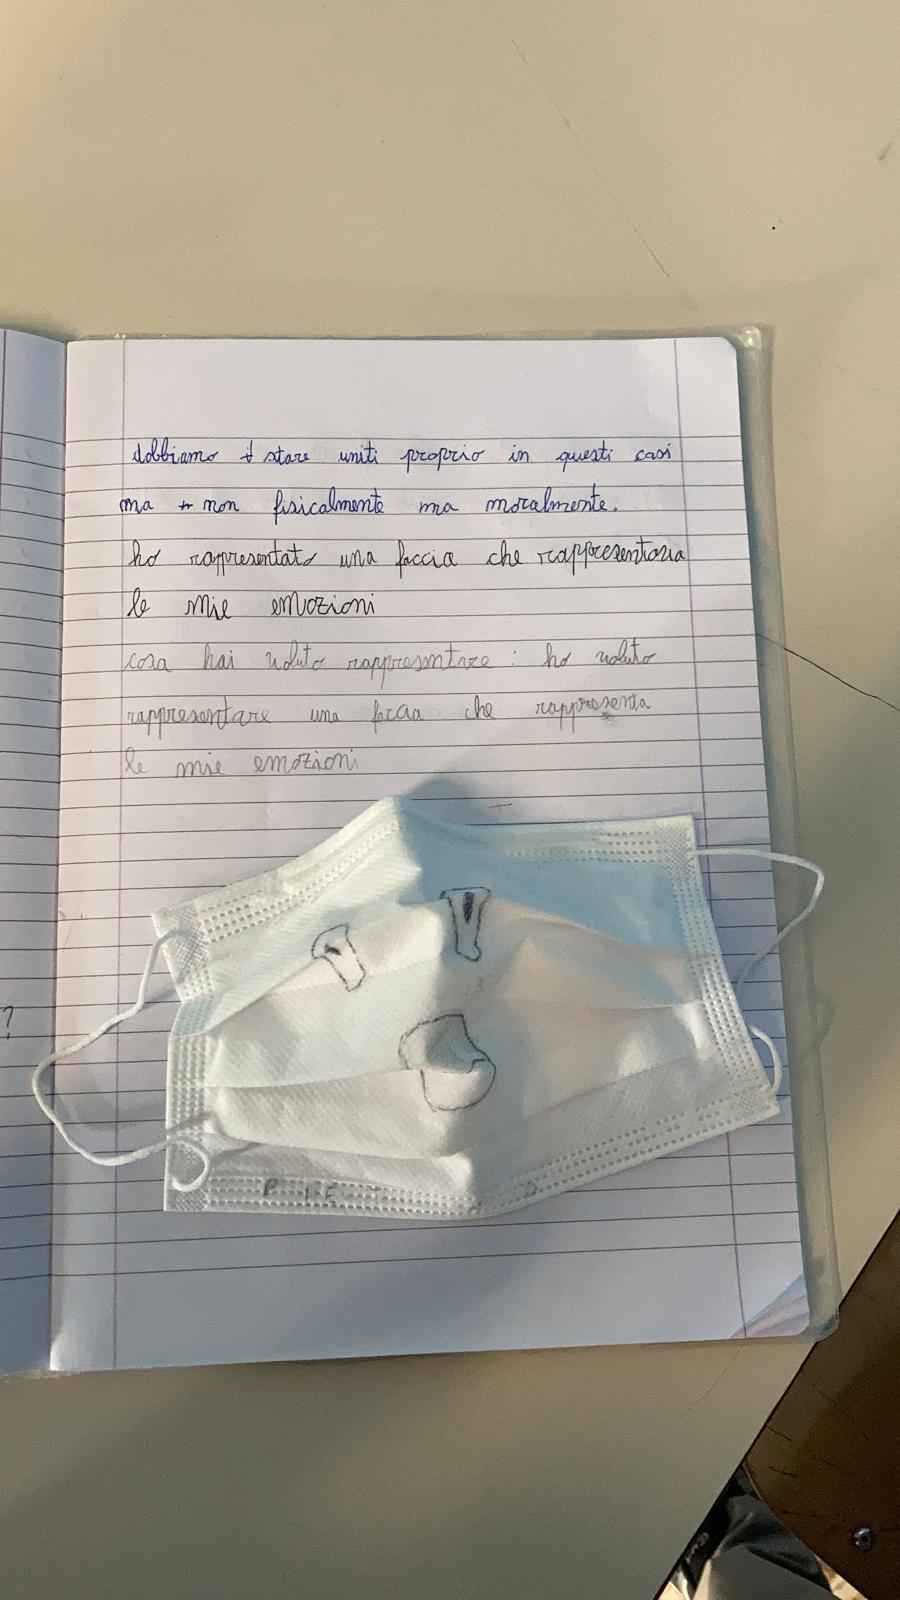 dobbiamo stare uniti proprio in questi casi
ma non fisicalmente ma moralmente.
ho rappresentato una faccia che rappresentava
le mie emozioni
cosa hai voluto rappresentare : ho voluto
rappresentare una faccia che rappresenta
le mie emozioni
?